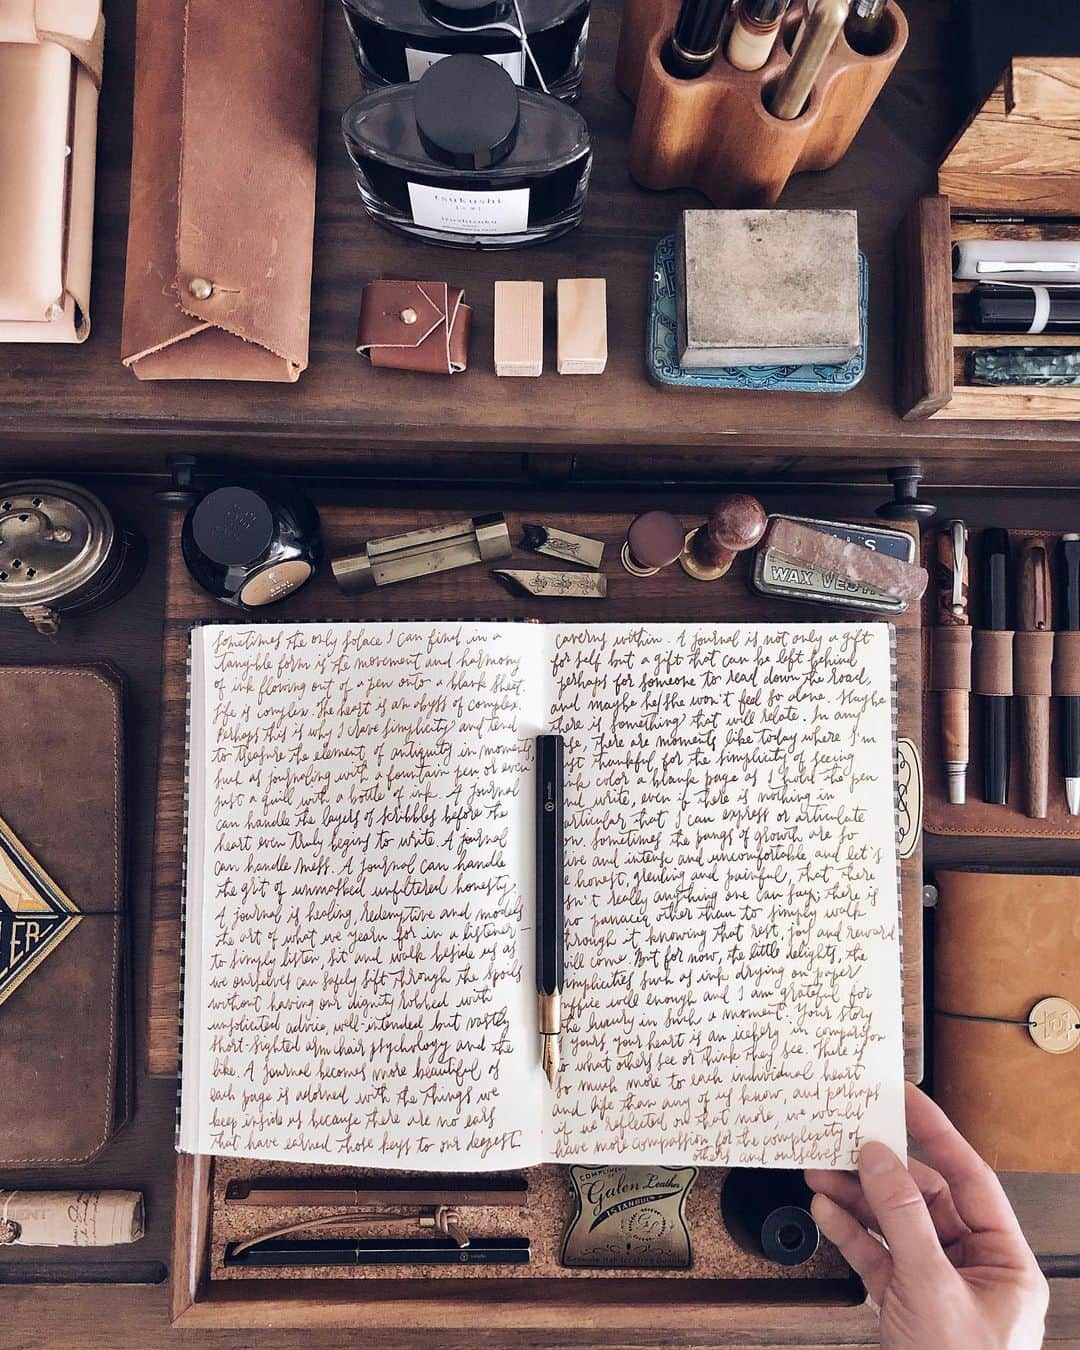 tsukushi
iroshizuku
WAX VESTAS
Sometimes the only solace I can find in a
tangible form is the movement and harmony
of ink flowing out of a pen onto a blank sheet.
Life is complex. The heart is an abyss of complex.
Perhaps this is why I crave simplicity and tend
to treasure the element of antiquity in moments,
such as journaling with a fountain pen or even
just a quill with a bottle of ink. A journal
can handle the layers of scribbles before the
heart even truly begins to write. A journal
can handle mess. A journal can handle
the grit of unmasked unfiltered honesty.
A journal is healing, redemptive and models
the art of what we yearn for in a listener—
to simply listen, sit and walk beside us as
we ourselves can safely sift through the spoils
without having our dignity robbed with
unsolicited advice, well-intended but vastly
short-sighted armchair psychology and the
like. A journal becomes more beautiful as
each page is adorned with the things we
keep inside us because there are no ears
that have earned those keys to our deepest
caverns within. A journal is not only a gift
for self but a gift that can be left behind
perhaps for someone to read down the road,
and maybe he/she won't feel so alone. Maybe
there is something that will relate. In any
, there are moments like today where I'm
just thankful for the simplicity of seeing
ink color a blank page as I hold the pen
and write, even if there is nothing in
particular that I can express or articulate
on. Sometimes the pangs of growth are so
and intense and uncomfortable, and let's
be honest, grueling and painful, that there
isn't really anything one can say; there is
no panacea other than to simply walk
through it knowing that rest, joy and reward
will come. But for now, the little delights, the
simplicities such as ink drying on paper
suffice well enough and I am grateful for
the luxury in such a moment. Your story
is yours, your heart is an iceberg in comparison
to what others see or think they see. There is
so much more to each individual heart
and life than any of us know, and perhaps
if we reflected on that more, we would
have more compassion for the complexity of
others and ourselves
LER
COMPLIMENT
Galen Leather
ISTANBUL